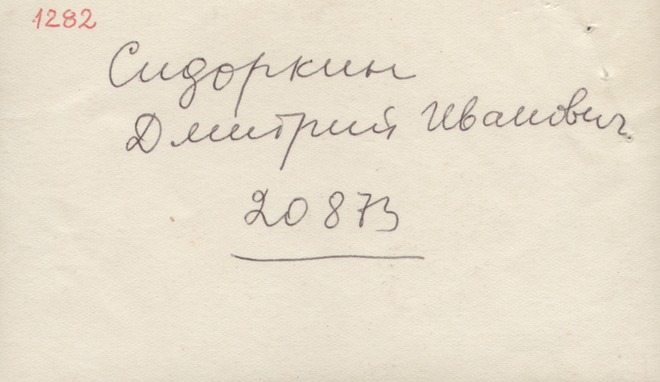 1282
Сидоркин
Дмитрий Иванович
20873